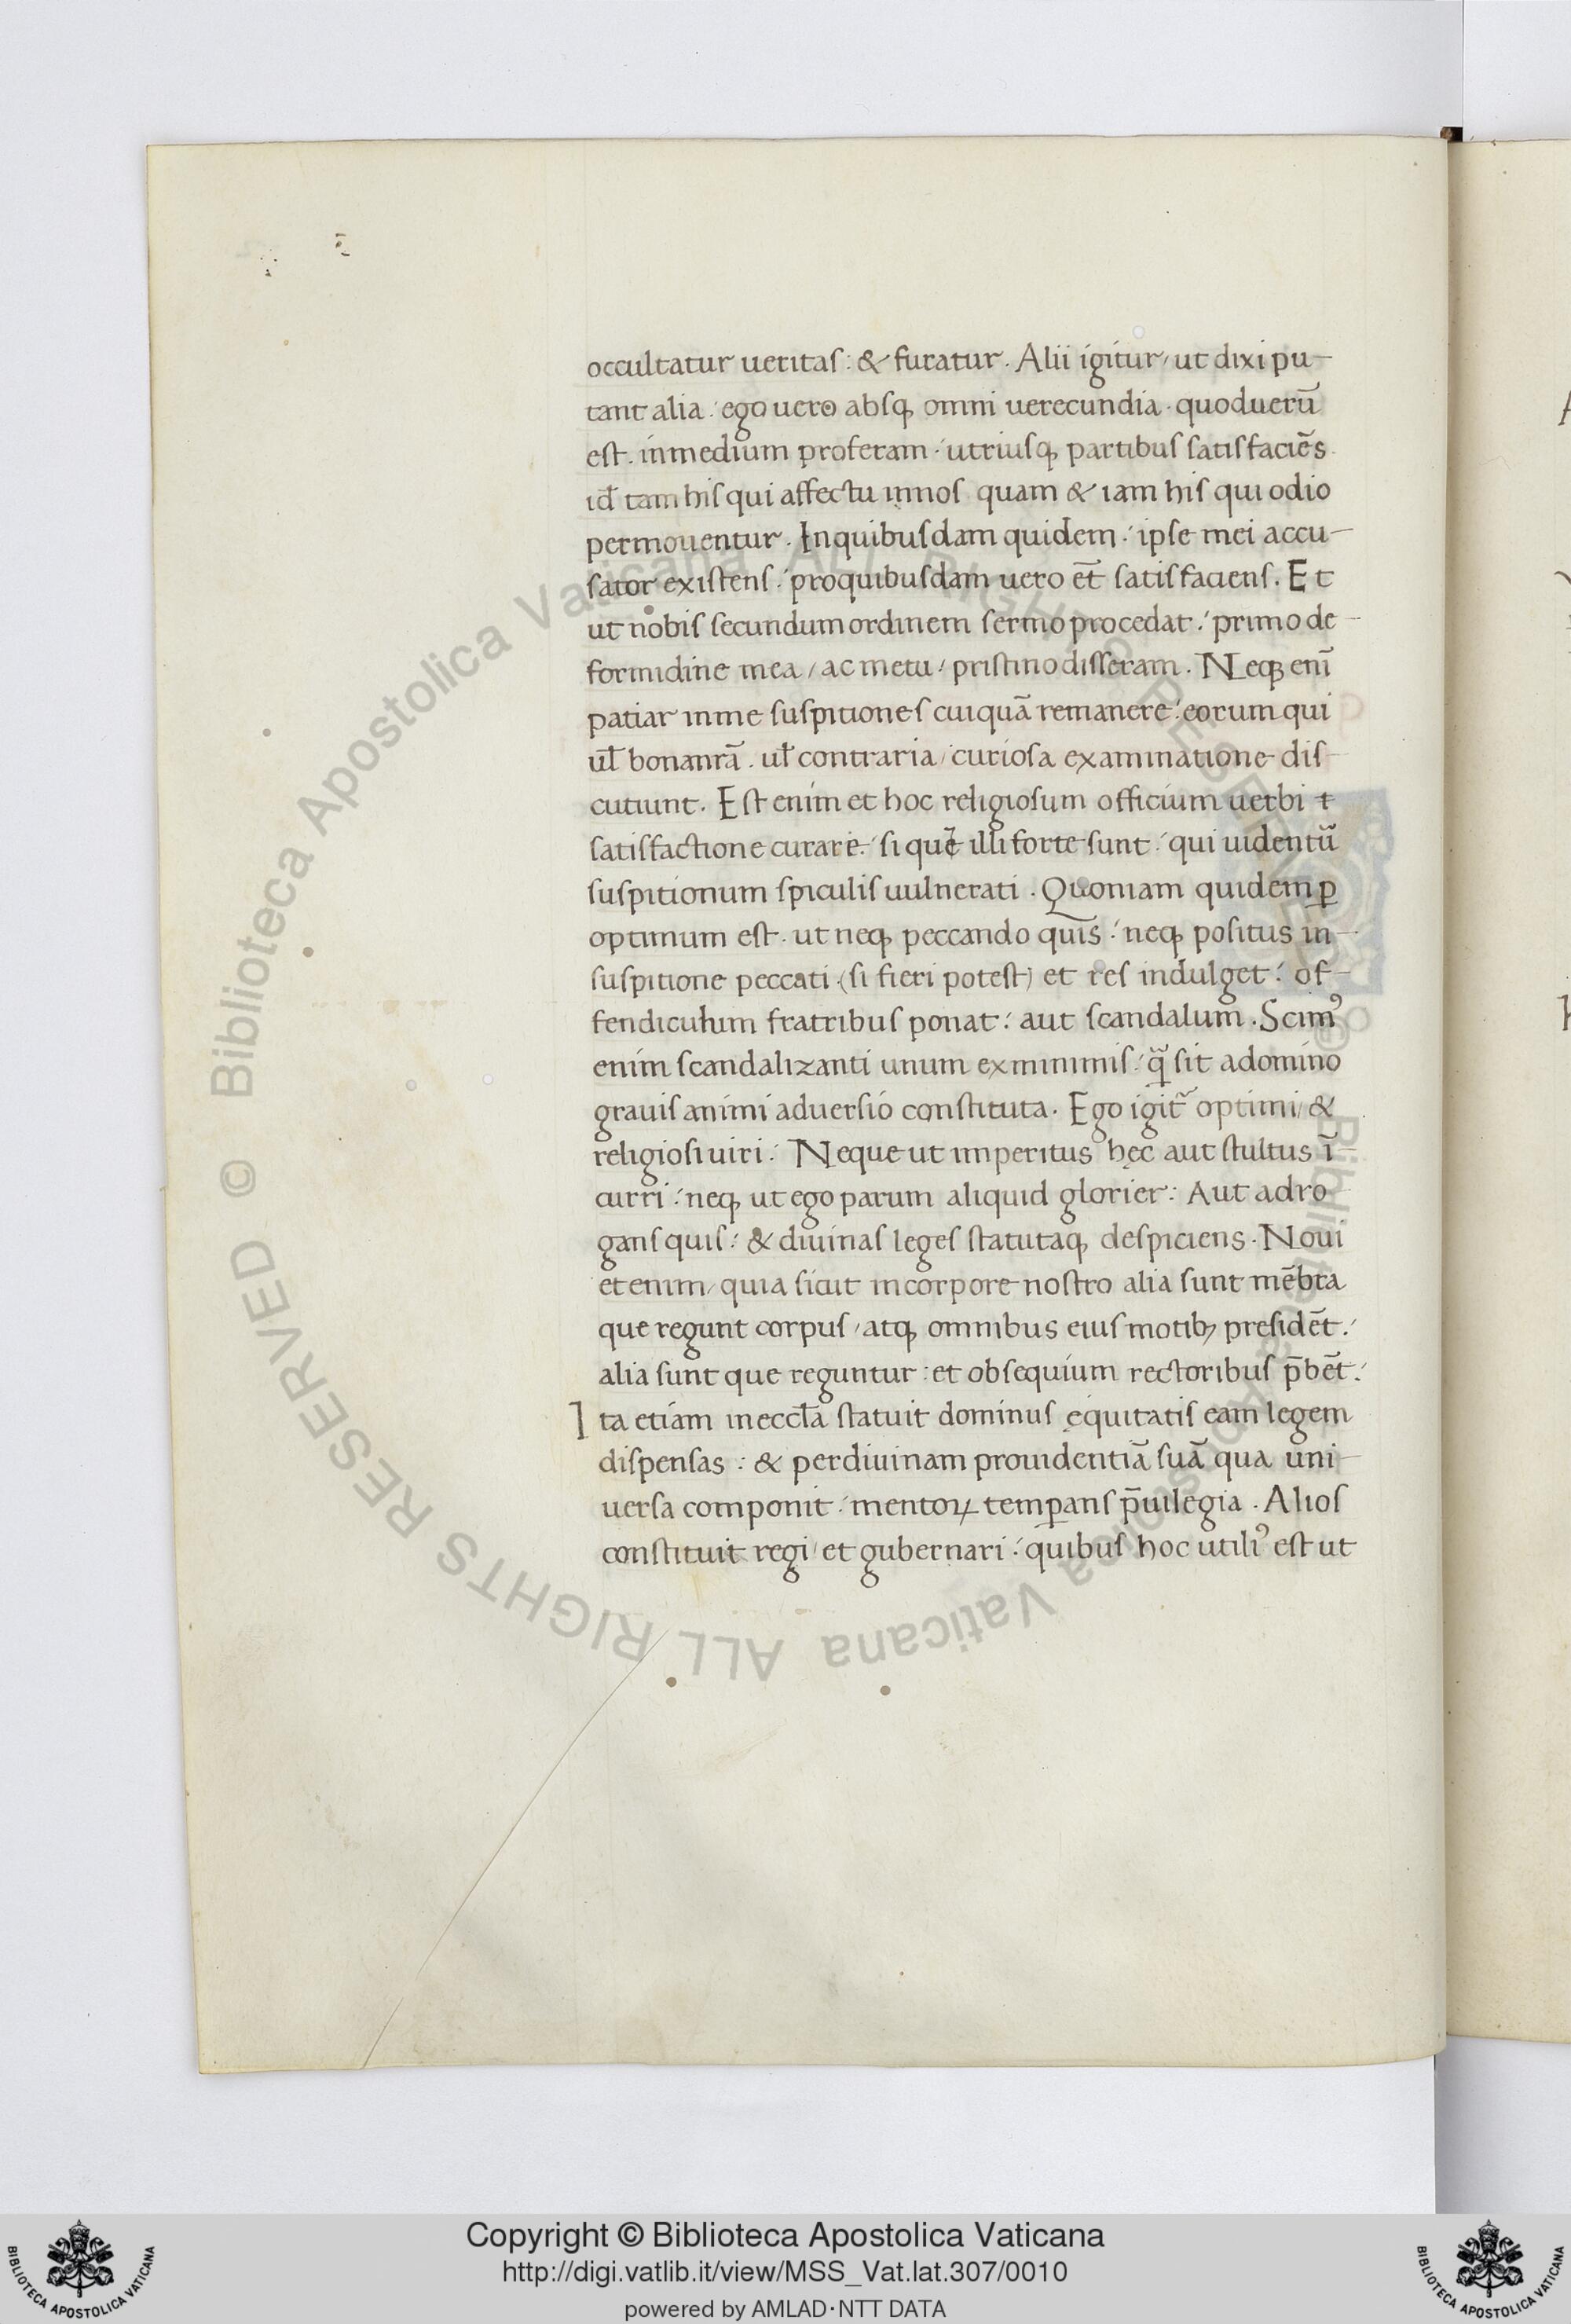 occultatur ueritas: & furatur. Alii igitur, ut dixi pu-
tant alia: ego uero absq; omni uerecundia. quoduerū
est. inmedium proferam: utriusq; partibus satisfaciēs.
id tam his qui affectu innos quam & iam his qui odio
permouentur. Inquibusdam quidem: ipse mei accu-
sator existens: proquibusdam uero et̄ satisfaciens. Et
ut nobis secundum ordinem sermo procedat: primo de
formidine mea, ac metu: pristino disseram. Neq; enī
patiar inme suspitiones cuiquā remanere: eorum qui
ul̄ bonanrā. ul̄ contraria, curiosa examinatione dis-
cutiunt. Est enim et hoc religiosum officium uerbi
satisfactione curare: si illi forte sunt: qui uidentũ
suspitionum spiculis uulnerati. Quoniam quidem ꝑ
optimum est. ut neq; peccando quis: neq; positus in-
suspitione peccati (si fieri potest) et res indulget: of-
fendiculum fratribus ponat: aut scandalum. Scimꝰ
enim scandalizanti unum exminimis: sit adomino
grauis animi aduersio constituta. Ego igit̃ optimi, &
religiosi uiri: Neque ut imperitus hęc aut stultus ī-
curri: neq; ut ego parum aliquid glorier: Aut adro-
gans quis: & diuinas leges statutaq; despiciens. Noui
etenim, quia sicut incorpore nostro alia sunt mēbra
que regunt corpus, atq; omnibus eius motib; presidēt:
alia sunt que reguntur: et obsequium rectoribus p̄bēt:
Ita etiam ineccl̄a statuit dominus ęquitatis eam legem
dispensas: & perdiuinam prouidentiā suā qua uni-
uersa componit: mentoꝝ temꝑans p̄uilegia. Alios
constituit regi, et gubernari: quibus hoc utiliꝰ est ut
© Biblioteca Apostolica Vaticana ALL RIGHTS RESERVED
© Biblioteca Apostolica Vaticana ALL RIGHTS RESERVED
Copyright © Biblioteca Apostolica Vaticana
http://digi.vatlib.it/view/MSS_Vat.lat.307/0010
powered by AMLAD·NTT DATA
BIBLIOTECA APOSTOLICA VATICANA
BIBLIOTECA APOSTOLICA VATICANA